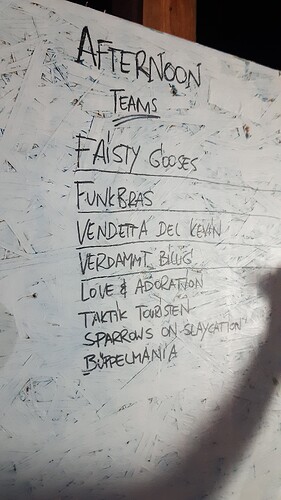 AFTERNOON
TEAMS
FAISTY GOOSES
FUNKBRAS
VENDETTA DEL KEVIN
VERDAMMT BLUIG
LOVE & ADORATION
TAKTIK TOURISTEN
SPARROWS ON SLAYCATION
BÜFFELMANIA